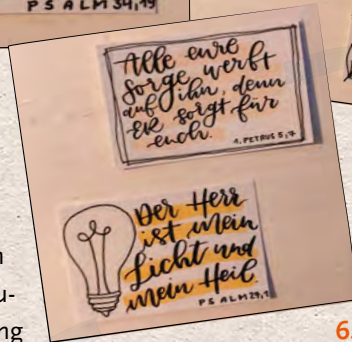 PSALM 34,19
Alle eure
Sorge werft
auf ihn, denn
ER sorgt für
euch.
1. PETRUS 5,7
Der Herr
ist mein
Licht und
mein Heil.
PSALM 27,1
n
u-
ng
6